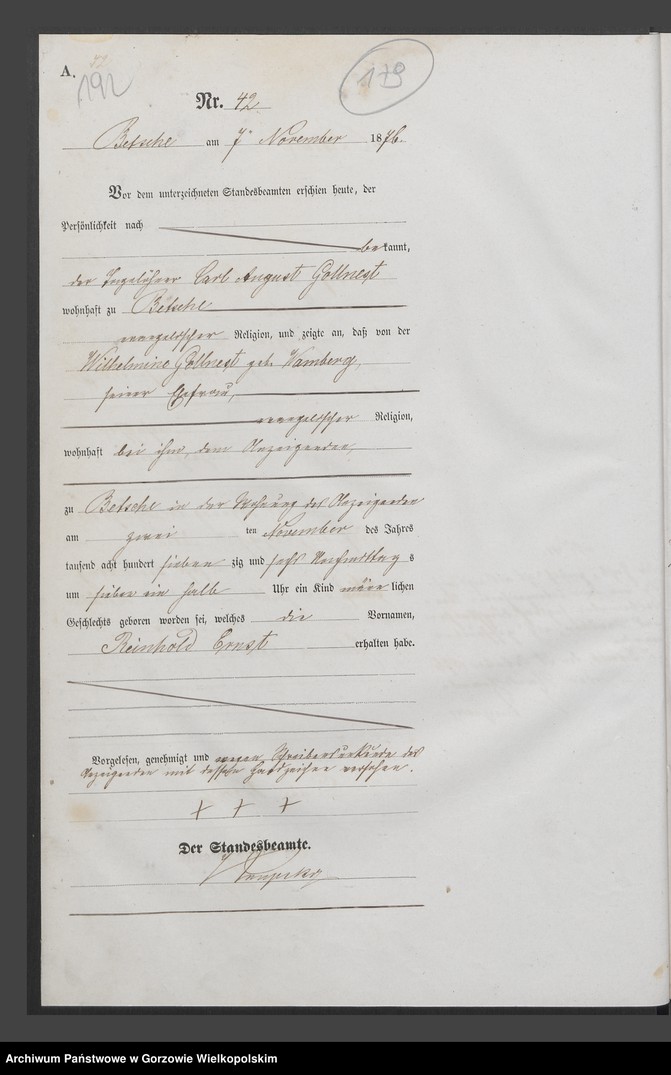 A.
192
179
Nr. 42
Betsche am 7ten November 1876.
Vor dem unterzeichneten Standesbeamten erschien heute, der
Persönlichkeit nach
bekannt,
der Tagelöhner Carl August Gollnest
wohnhaft zu Betsche
evangelischer Religion, und zeigte an, daß von der
Wilhelmine Gollnest geb. Wamberg,
seiner Ehefrau,
evangelischer Religion,
wohnhaft bei ihm, dem Anzeigenden,
zu Betsche in der Wohnung des Anzeigenden
am zwei ten November des Jahres
tausend acht hundert sieben zig und sechs Nachmittag s
um sieben ein halb Uhr ein Kind männ lichen
Geschlechts geboren worden sei, welches die Vornamen,
Reinhold Ernst erhalten habe.
Vorgelesen, genehmigt und wegen des
Anzeigenden mit dessen Handzeichen versehen.
+ + +
Der Standesbeamte.
Archiwum Państwowe w Gorzowie Wielkopolskim